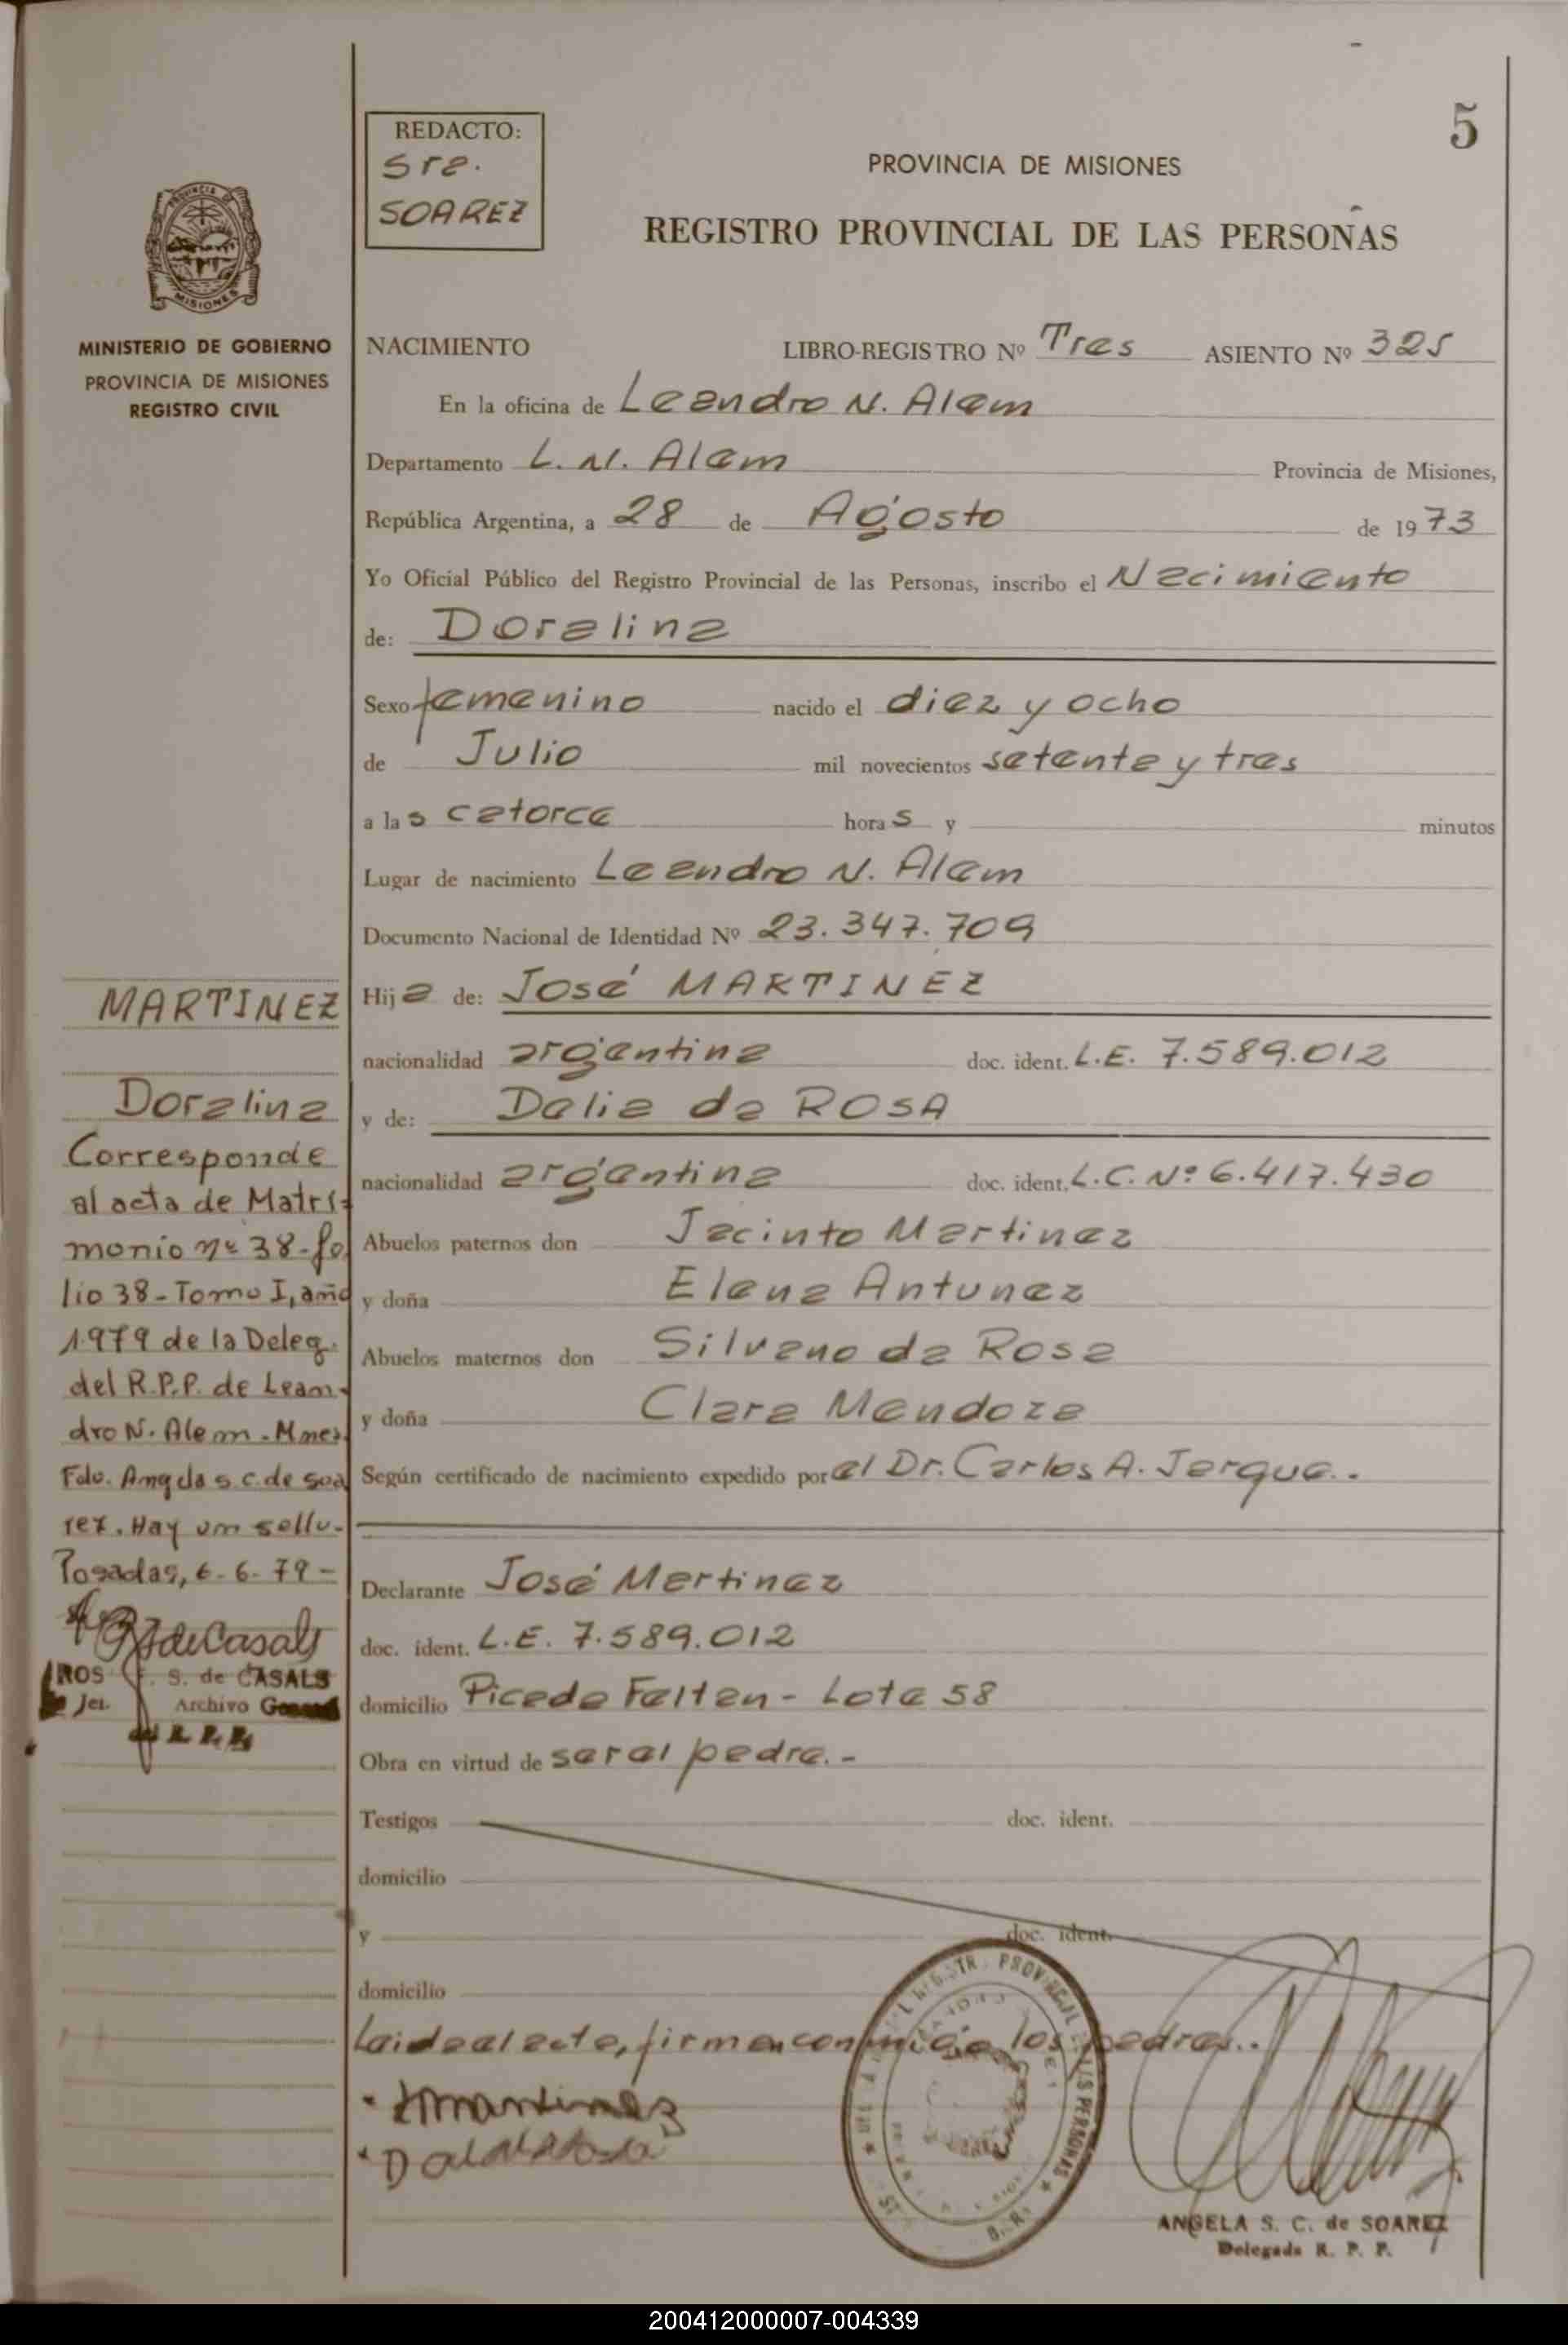 5
REDACTO:
Sra.
SOAREZ
PROVINCIA DE MISIONES
REGISTRO PROVINCIAL DE LAS PERSONAS
PROVINCIA DE
MISIONES
MINISTERIO DE GOBIERNO
PROVINCIA DE MISIONES
REGISTRO CIVIL
NACIMIENTO LIBRO-REGISTRO Nº Tres ASIENTO Nº 325
En la oficina de Leandro N. Alem
Departamento L. N. Alem Provincia de Misiones,
República Argentina, a 28 de Agosto de 1973
Yo Oficial Público del Registro Provincial de las Personas, inscribo el Nacimiento
de: Doralina
Sexo femenino nacido el diez y ocho
de Julio mil novecientos setenta y tres
a las catorce horas y minutos
Lugar de nacimiento Leandro N. Alem
Documento Nacional de Identidad Nº 23.347.709
Hija de: José MARTINEZ
nacionalidad argentina doc. ident. L.E. 7.589.012
y de: Delia da ROSA
nacionalidad argentina doc. ident. L.C. Nº 6.417.430
Abuelos paternos don Jacinto Martinez
y doña Elena Antunez
Abuelos maternos don Silvano da Rosa
y doña Clara Mendoza
Según certificado de nacimiento expedido por el Dr. Carlos A. Jerque.-
Declarante José Martinez
doc. ident. L.E. 7.589.012
domicilio Picada Falten - Lote 58
Obra en virtud de ser el padre.-
Testigos doc. ident.
domicilio
y doc. ident.
domicilio
Leída el acta, firman conmigo los padres..
MARTINEZ
Doralina
Corresponde
al acta de Matri-
monio nº 38-fo
lio 38-Tomo I, año
1979 de la Deleg.
del R.P.P. de Lean-
dro N. Alem-Mnes.
Fdo. Angela S.C. de Soa
rez. Hay un sello-
Posadas, 6-6-79-
S. de CASALS
Archivo General
JMartinez
ANGELA S. C. de SOAREZ
Delegada R. P. P.
200412000007-004339